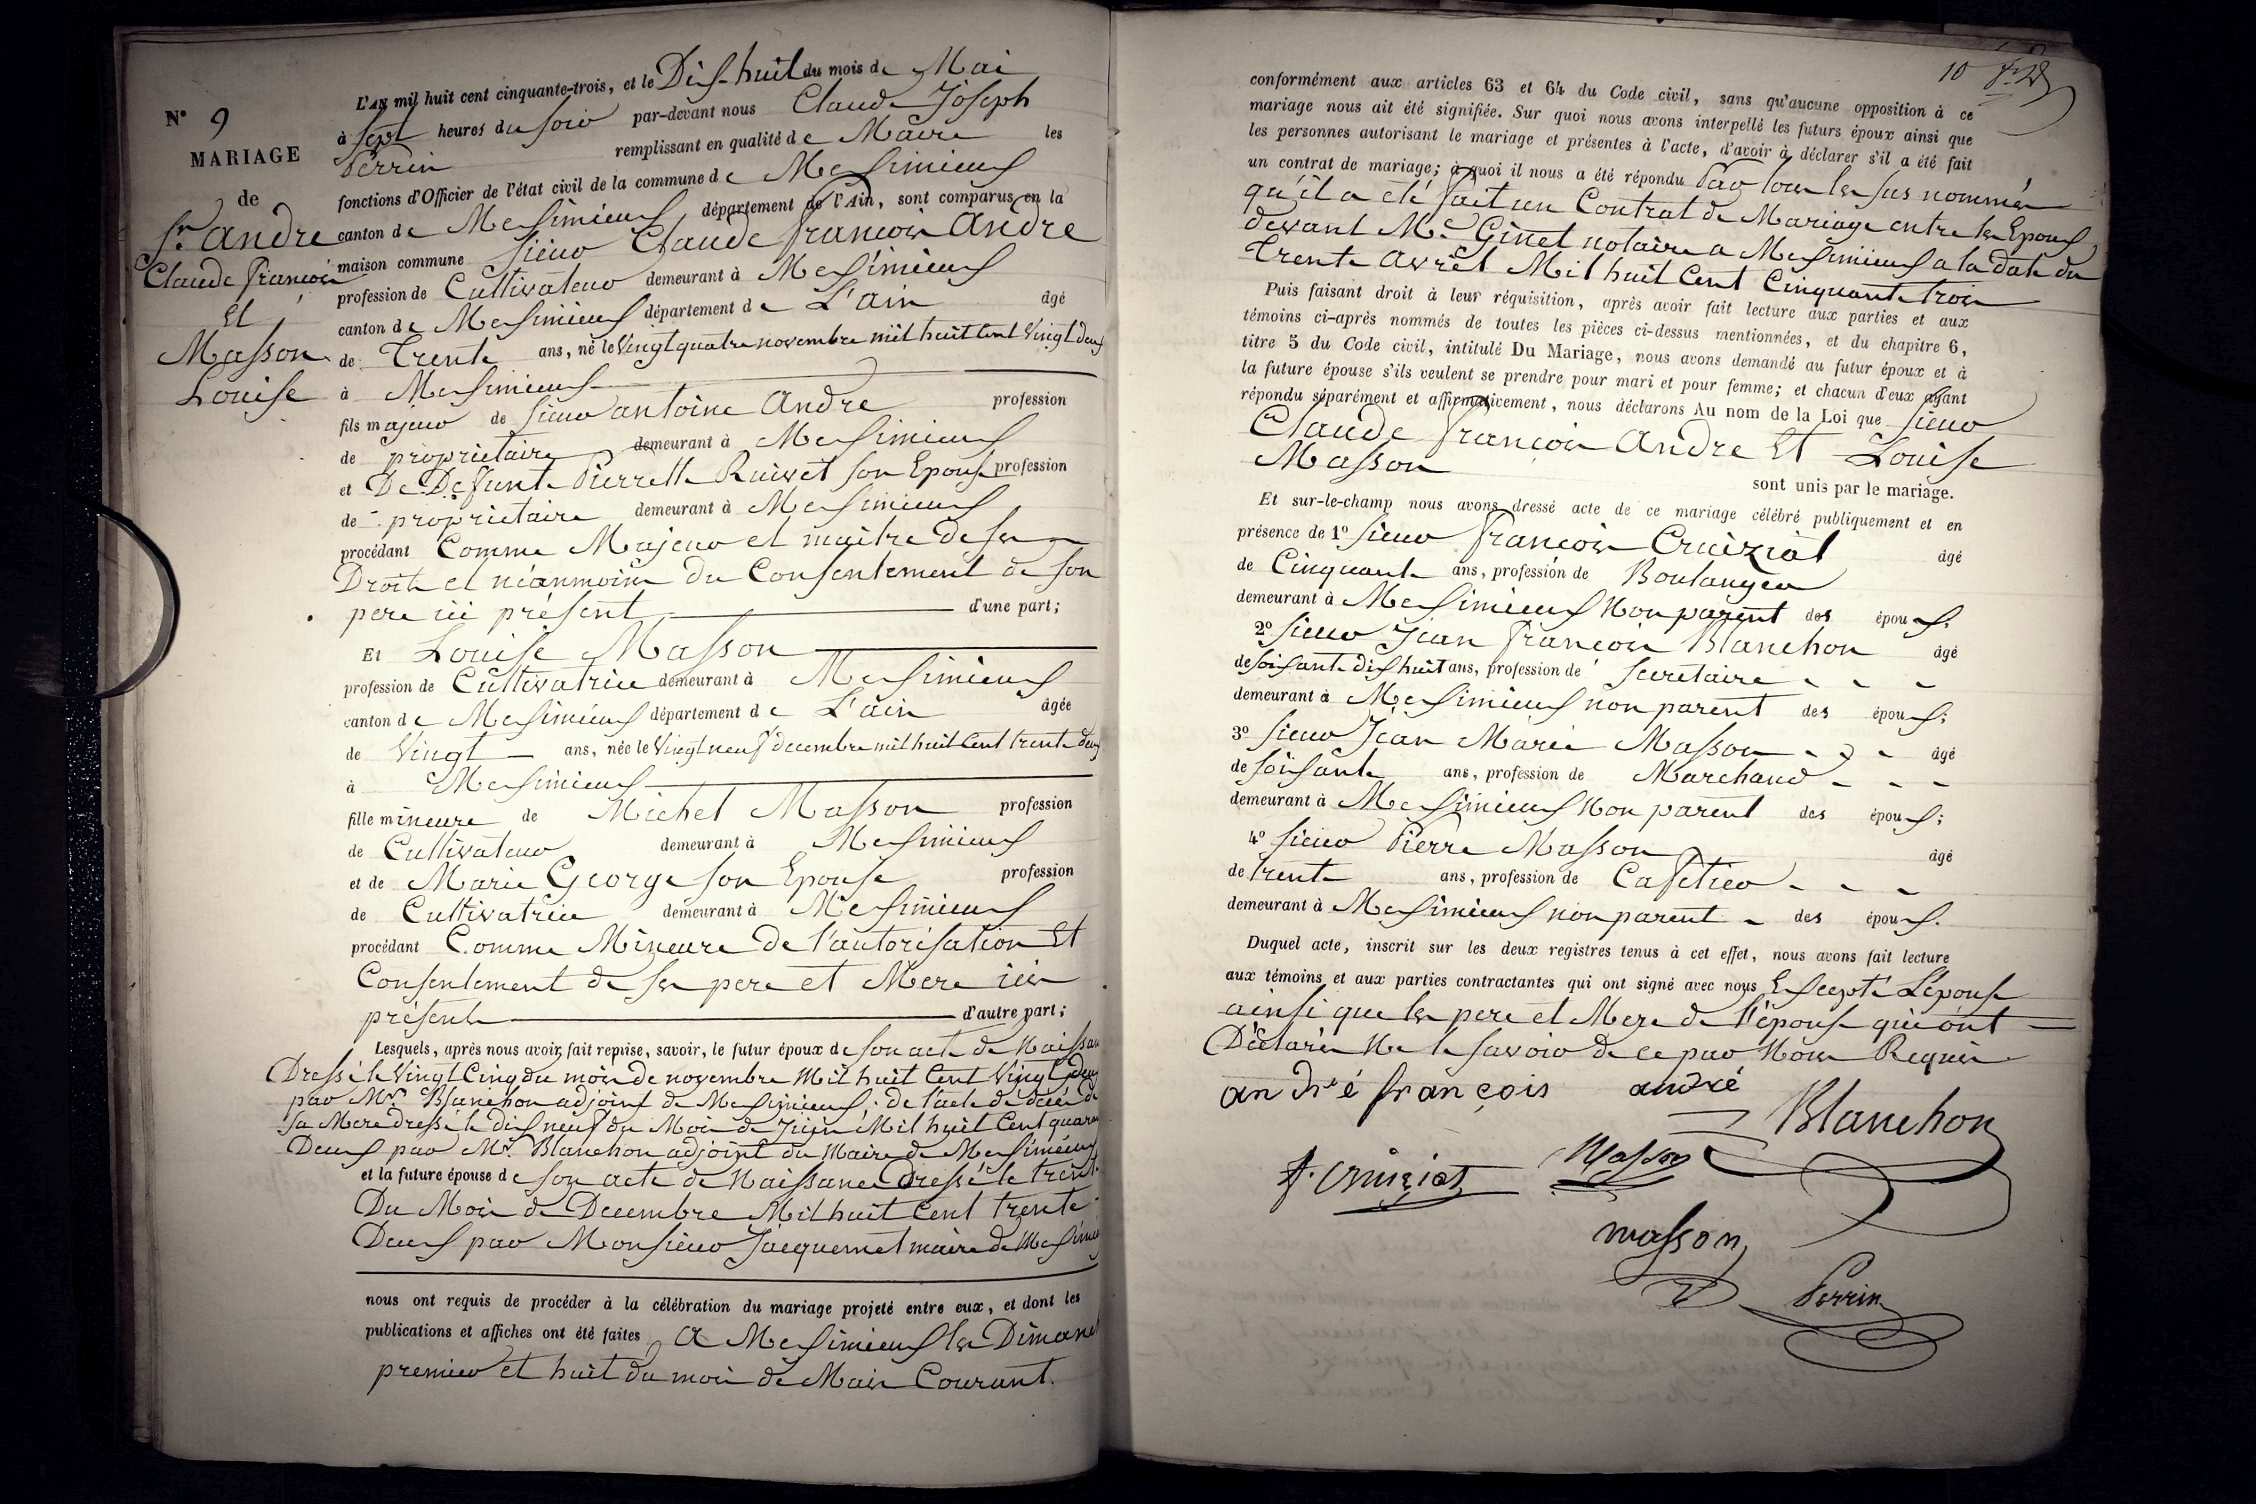 N° 9
MARIAGE
de
Sr. André
Claude François
Et
Masson
Louise
L'AN mil huit cent cinquante-trois, et le Dix-huit du mois de Mai
à sept heures du soir par-devant nous Claude Joseph
Perrin remplissant en qualité de Maire les
fonctions d'Officier de l'état civil de la commune de Meximieux
canton de Meximieux, département de l'Ain, sont comparus en la
maison commune Sieur Claude François André
profession de Cultivateur demeurant à Meximieux
canton de Meximieux département de L'ain âgé
de Trente ans, né le Vingt quatre novembre mil huit Cent Vingt deux
à Meximieux
fils majeur de Sieur antoine André profession
de propriétaire demeurant à Meximieux
et De Défunte Pierrette Ruivet son Epouse profession
de propriétaire demeurant à Meximieux
procédant Comme Majeur et maître de ses
Droits et néanmoins du Consentement de son
pere ici présent d'une part;
Et Louise Masson
profession de Cultivatrice demeurant à Meximieux
canton de Meximieux département de L'ain âgée
de Vingt ans, née le Vingt neuf decembre mil huit Cent trente deux
à Meximieux
fille mineure de Michel Masson profession
de Cultivateur demeurant à Meximieux
et de Marie George son Epouse profession
de Cultivatrice demeurant à Meximieux
procédant Comme Mineure de l'autorisation Et
Consentement de ses pere et Mere ici
présents d'autre part;
Lesquels, après nous avoir fait remise, savoir, le futur époux de son acte de Naissan
Dressé le Vingt Cinq du mois de novembre Mil huit Cent Vingt deux
par Mr. Blanchon adjoint de Meximieux; de l'acte de décés de
sa Mere dressé le dix neuf du Mois de Juin Mil huit Cent quaran
Deux par Mr. Blanchon adjoint du Maire de Meximieux
et la future épouse de son acte de Naissance Dressé le trente
Du Mois de Decembre Mil huit Cent trente
Deux par Monsieur Jacquemet maire de Meximie
nous ont requis de procéder à la célébration du mariage projeté entre eux, et dont les
publications et affiches ont été faites à Meximieux les Dimanch
premier et huit du mois de Mai Courant.
10
conformément aux articles 63 et 64 du Code civil, sans qu'aucune opposition à ce
mariage nous ait été signifiée. Sur quoi nous avons interpellé les futurs époux ainsi que
les personnes autorisant le mariage et présentes à l'acte, d'avoir à déclarer s'il a été fait
un contrat de mariage; à quoi il nous a été répondu Par tous les sus nommés
qu'il a eté fait un Contrat de Mariage entre les Epoux
devant Me Ginet notaire a Meximieux a la date du
Trente Avrêl Mil huit Cent Cinquante trois
Puis faisant droit à leur réquisition, après avoir fait lecture aux parties et aux
témoins ci-après nommés de toutes les pièces ci-dessus mentionnées, et du chapitre 6,
titre 5 du Code civil, intitulé Du Mariage, nous avons demandé au futur époux et à
la future épouse s'ils veulent se prendre pour mari et pour femme; et chacun d'eux ayant
répondu séparément et affirmativement, nous déclarons Au nom de la Loi que Sieur
Claude François André Et Louise
Masson
sont unis par le mariage.
Et sur-le-champ nous avons dressé acte de ce mariage célébré publiquement et en
présence de 1° Sieur François Cruiziat âgé
de Cinquante ans, profession de Boulanger
demeurant à Meximieux Non parent des époux;
2° Sieur Jean François Blanchon âgé
de soixante dix huit ans, profession de Secretaire
demeurant à Meximieux non parent des époux;
3° Sieur Jean Marie Masson âgé
de soixante ans, profession de Marchand
demeurant à Meximieux Non parent des époux;
4° Sieur Pierre Masson âgé
de trente ans, profession de Cafetier
demeurant à Meximieux non parent des époux.
Duquel acte, inscrit sur les deux registres tenus à cet effet, nous avons fait lecture
aux témoins et aux parties contractantes qui ont signé avec nous Excepté L'épouse
ainsi que les pere et Mere de l'épouse qui ont
Déclarés Ne le savoir de ce par Nous Requis
andré françois andré
Blanchon
f. Cruiziat Masson
masson
Perrin